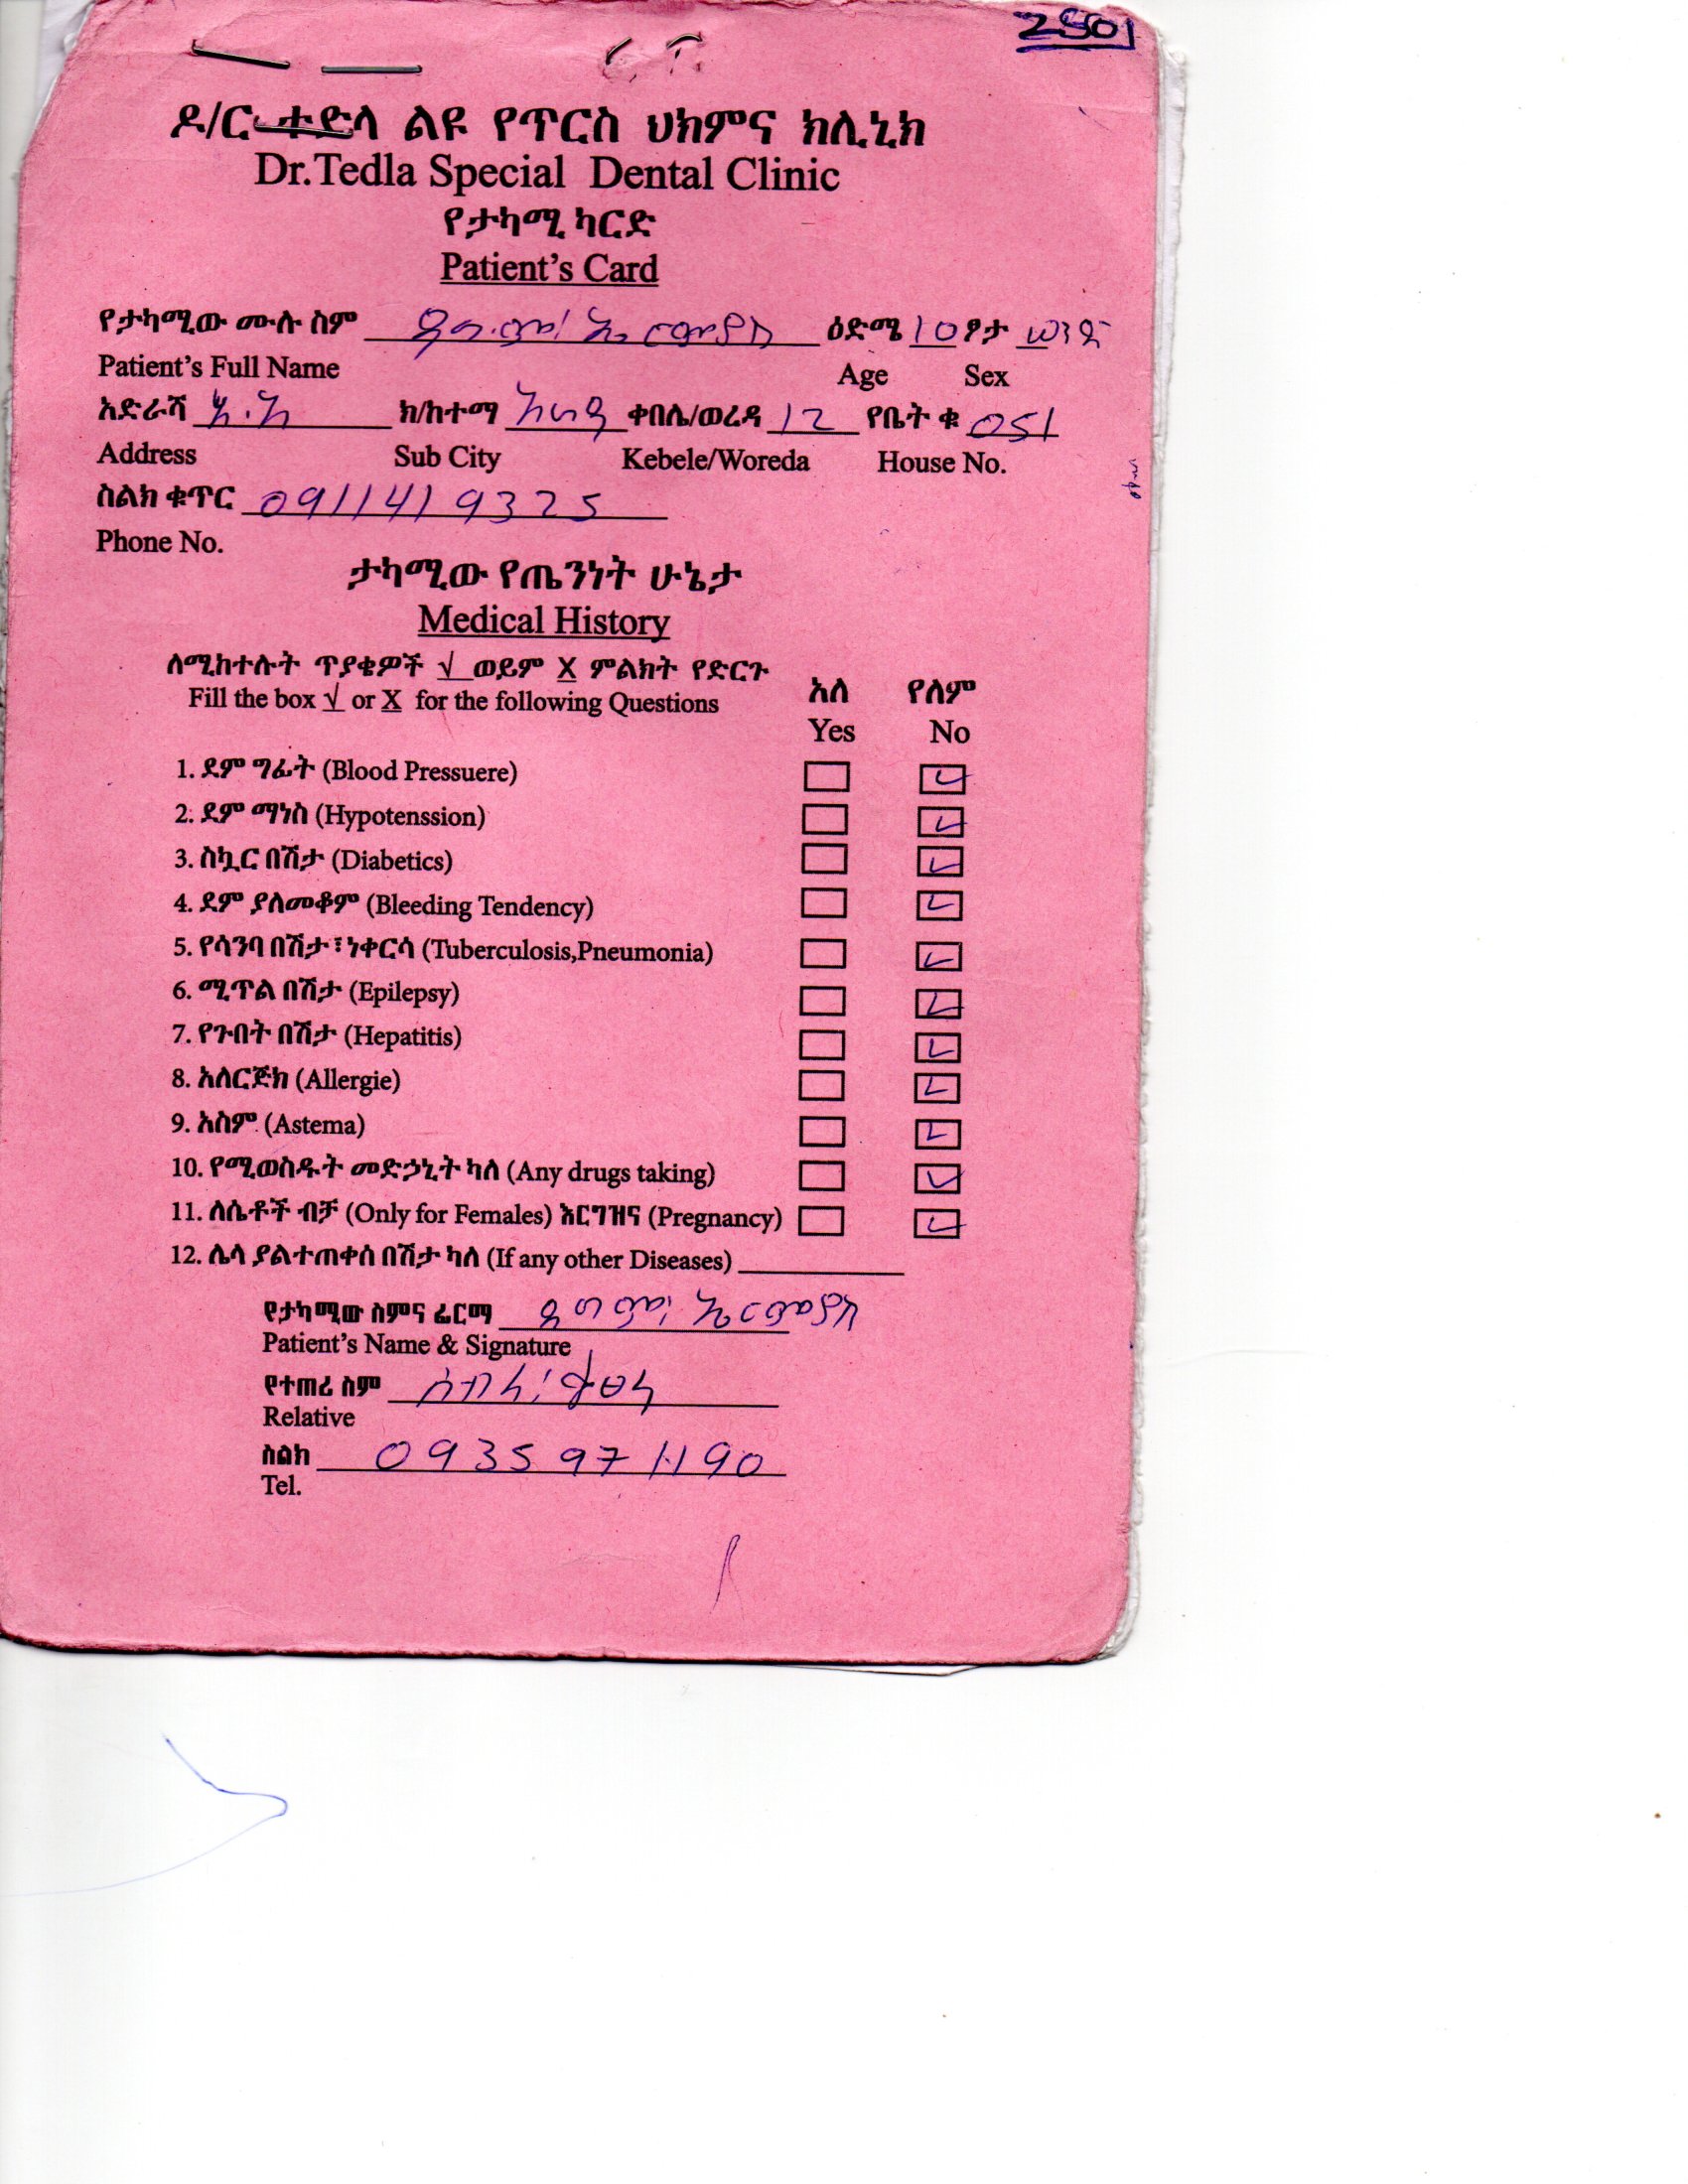 2501
ዶ/ር ተድላ ልዩ የጥርስ ህክምና ክሊኒክ
Dr.Tedla Special Dental Clinic
የታካሚ ካርድ
Patient's Card
የታካሚው ሙሉ ስም ዳግማዊ ኤርምያስ ዕድሜ 10 ፆታ ወንድ
Patient's Full Name Age Sex
አድራሻ አ.አ ክ/ከተማ አራዳ ቀበሌ/ወረዳ 12 የቤት ቁ 051
Address Sub City Kebele/Woreda House No.
ስልክ ቁጥር 0911419325
Phone No.
ታካሚው የጤንነት ሁኔታ
Medical History
ለሚከተሉት ጥያቄዎች √ ወይም X ምልክት የድርጉ
Fill the box √ or X for the following Questions
አለ የለም
Yes No
1. ደም ግፊት (Blood Pressuere)
2. ደም ማነስ (Hypotenssion)
3. ስኳር በሽታ (Diabetics)
4. ደም ያለመቆም (Bleeding Tendency)
5. የሳንባ በሽታ፣ነቀርሳ (Tuberculosis,Pneumonia)
6. ሚጥል በሽታ (Epilepsy)
7. የጉበት በሽታ (Hepatitis)
8. አለርጅክ (Allergie)
9. አስም (Astema)
10. የሚወስዱት መድኃኒት ካለ (Any drugs taking)
11. ለሴቶች ብቻ (Only for Females) እርግዝና (Pregnancy)
12. ሌላ ያልተጠቀሰ በሽታ ካለ (If any other Diseases)
የታካሚው ስምና ፊርማ ዳግማዊ ኤርምያስ
Patient's Name & Signature
የተጠሪ ስም
Relative
ስልክ 0935971190
Tel.